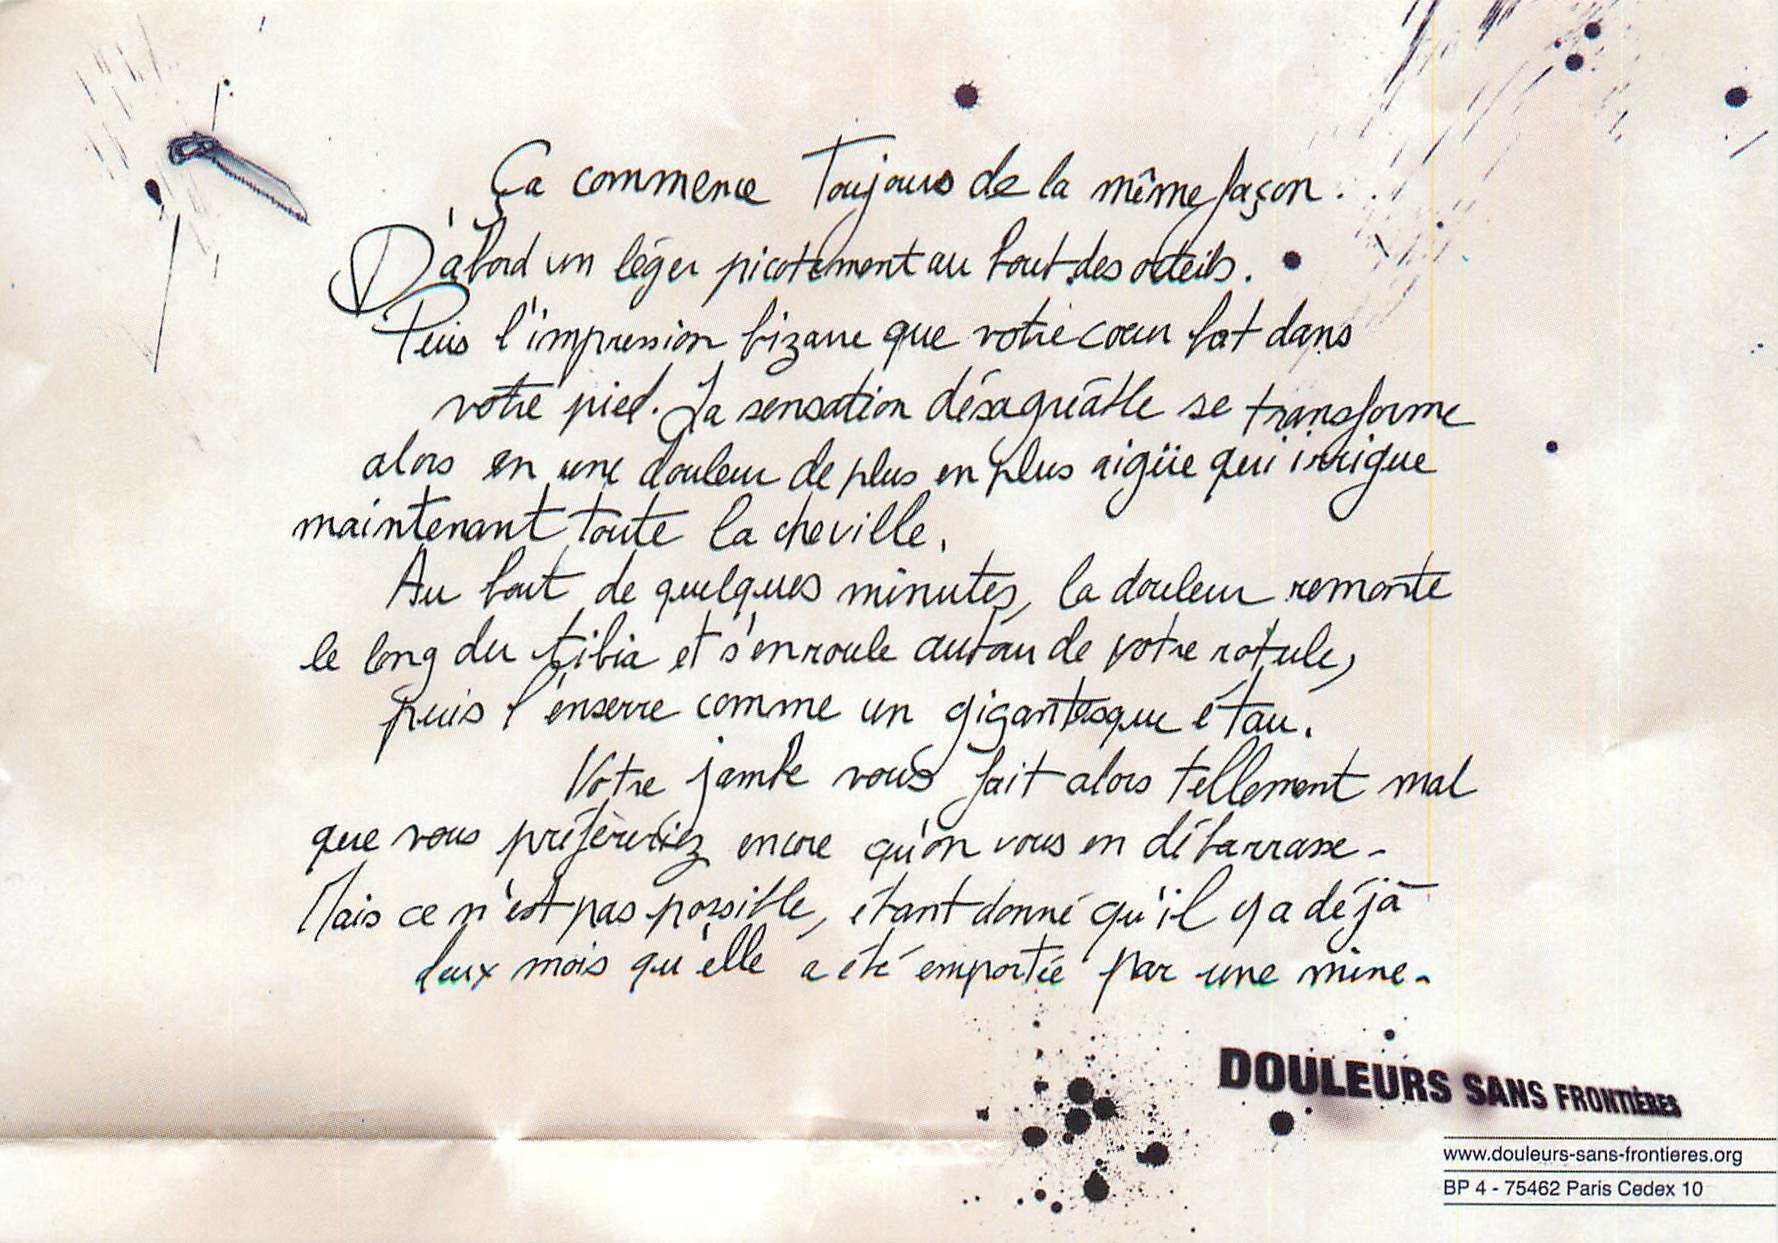 Ça commence Toujours de la même façon.
D'abord un léger picotement au bout des orteils.
Puis l'impression bizarre que votre coeur bat dans
votre pied. La sensation désagréable se transforme
alors en une douleur de plus en plus aigüe qui irrigue
maintenant toute la cheville.
Au bout de quelques minutes, la douleur remonte
le long du tibia et s'enroule autour de votre rotule,
puis l'enserre comme un gigantesque étau.
Votre jambe vous fait alors tellement mal
que vous préféreriez encore qu'on vous en débarrasse.
Mais ce n'est pas possible, étant donné qu'il y a déjà
deux mois qu'elle a été emportée par une mine.
DOULEURS SANS FRONTIÈRES
www.douleurs-sans-frontieres.org
BP 4 - 75462 Paris Cedex 10